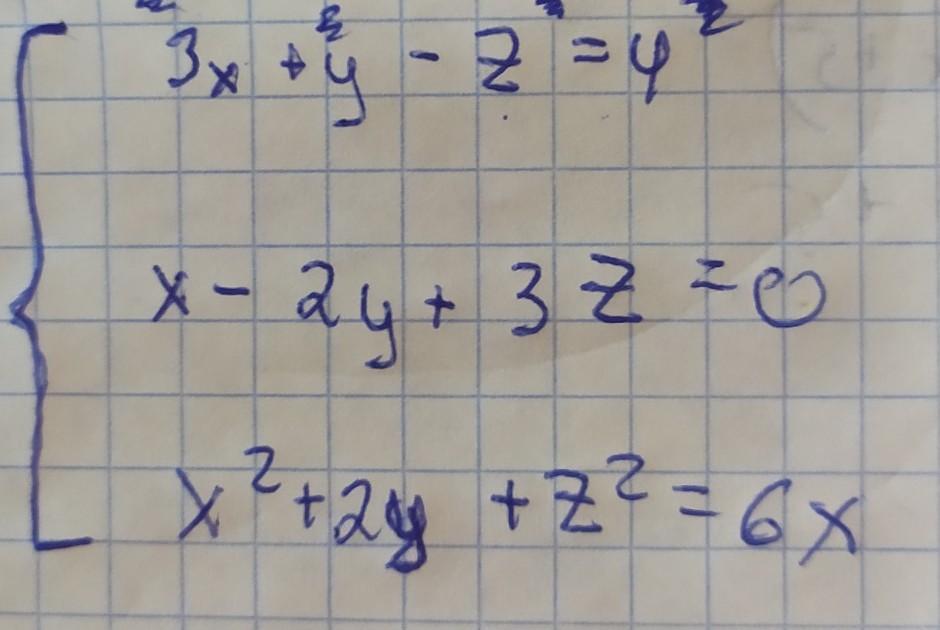 3x + y - z = 4
x - 2y + 3z = 0
x² + 2y + z² = 6x